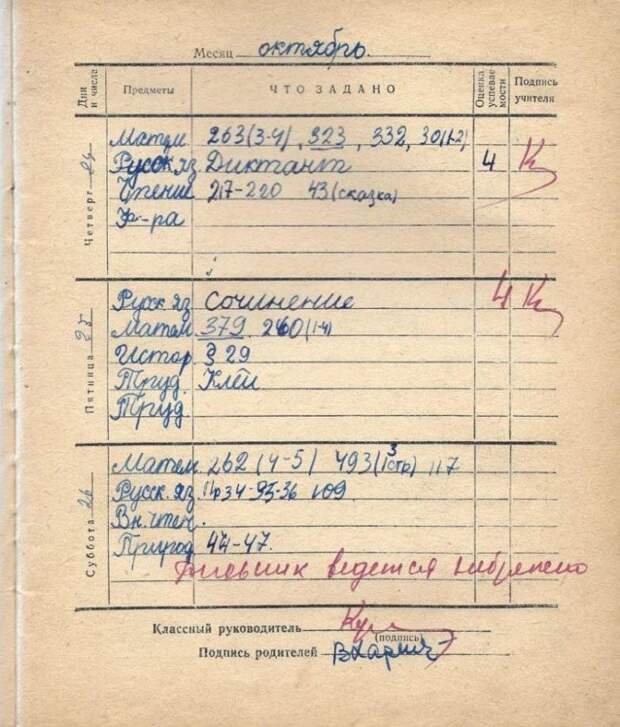 Месяц октябрь.
Дни и числа Предметы ЧТО ЗАДАНО Оценка успеваемости Подпись учителя
Четверг 24
Матем 263(3-4), 323, 332, 30(1-2)
Русск яз Диктант 4
Чтение 217-220 43 (сказка)
Ф-ра
Пятница 25
Русск яз. Сочинение 4
Матем. 379 260(1-4)
Истор. § 29
Труд. Клей
Труд.
Суббота 26
Матем. 262 (4-5) 117
Русск. яз. 109
Вн. чтен.
Природ 44-47.
Дневник ведется небрежно
Классный руководитель
(подпись)
Подпись родителей